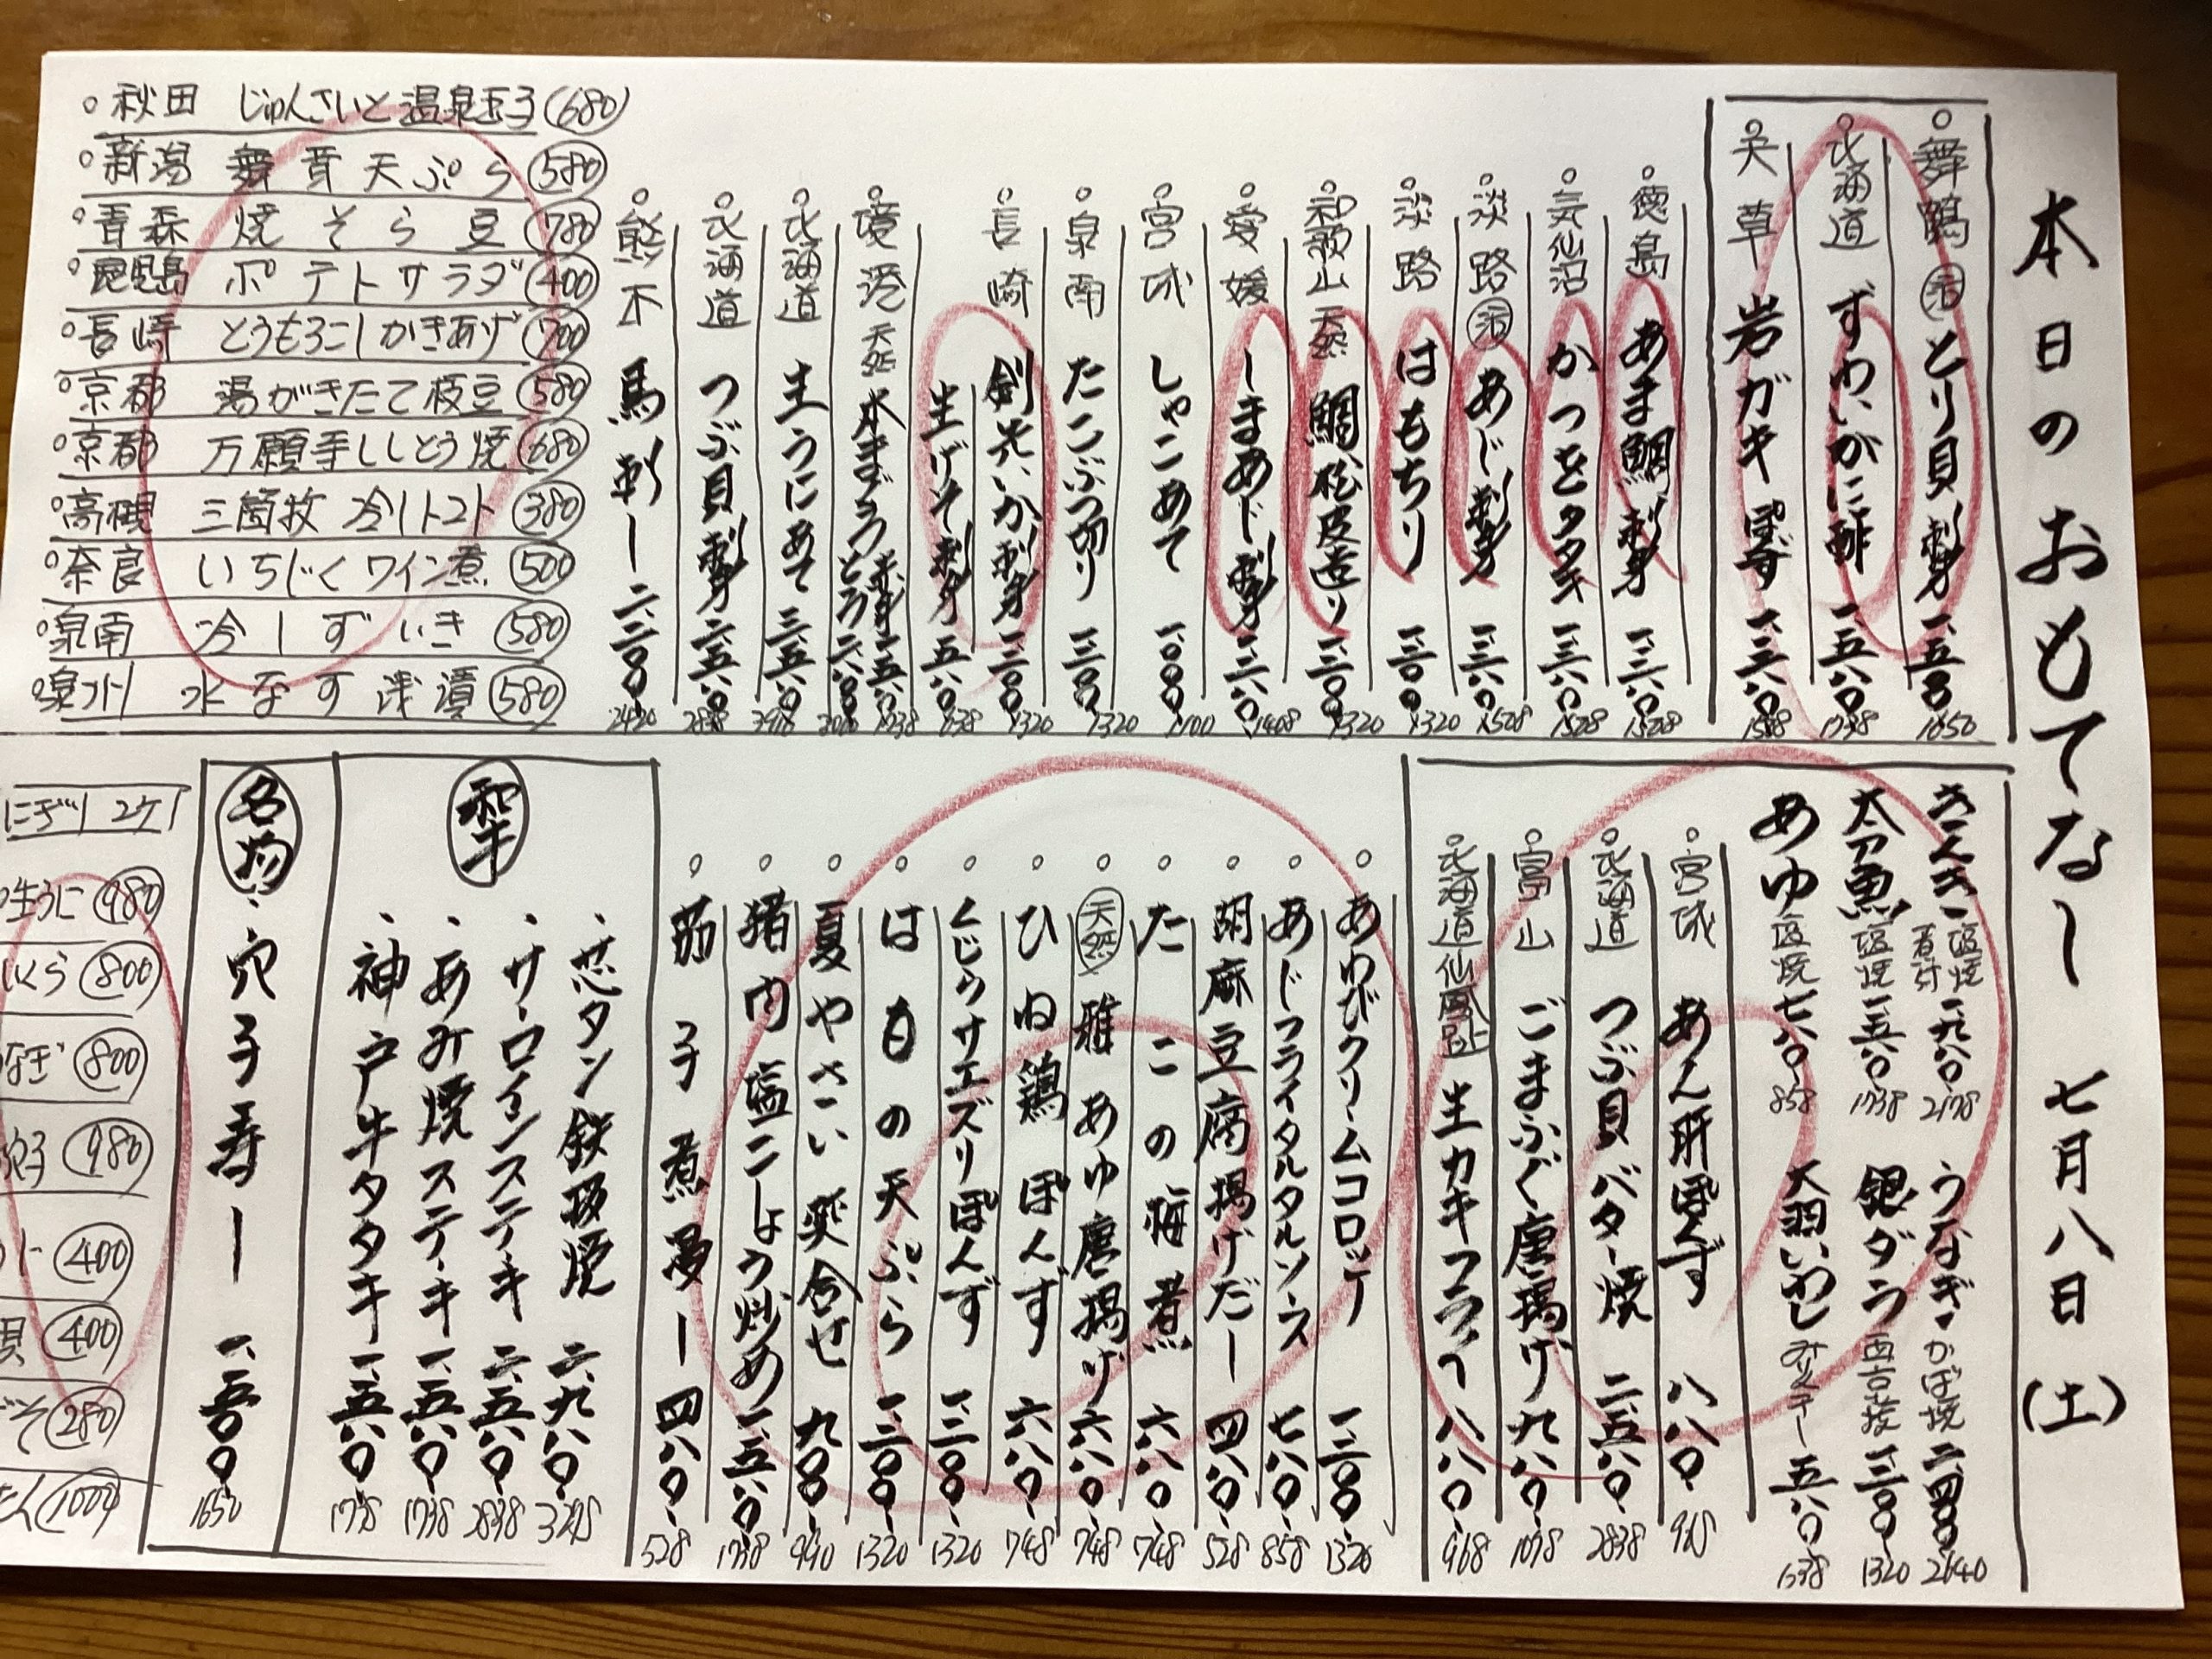 本日のおもてなし 七月八日(土)
舞鶴 活 とり貝 刺身 一、五〇〇 1650
北海道 ずわいがに酢 一、五八〇 1738
天草 岩ガキ ぽん酢 一、三八〇 1518
徳島 あま鯛 刺身 一、三八〇 1508
気仙沼 かつをタタキ 一、三八〇 1508
淡路 活 あじ 刺身 一、三八〇 1508
淡路 はもちり 一、二〇〇 1320
和歌山 天然 鯛 松皮造り 一、二〇〇 1320
愛媛 しまあじ 刺身 一、二八〇 1408
宮城 しゃこあて 一、〇〇〇 1100
泉南 たこぶつ切り 一、二〇〇 1320
長崎 剣先いか 刺身 一、二〇〇 1320
生げそ 刺身 五八〇 638
境港 天然 本まぐろ 赤身 一、五八〇 1738
とろ 二、八〇〇
北海道 生うにあて 三、五八〇
北海道 つぶ貝 刺身 二、五八〇 2838
熊本 馬刺し 二、二〇〇 2420
秋田 じゅんさいと温泉玉子 680
新潟 舞茸天ぷら 580
青森 焼そら豆 780
鹿児島 ポテトサラダ 400
長崎 とうもろこしかきあげ 700
京都 湯がきたて枝豆 580
京都 万願寺ししとう焼 680
高槻 三箇牧 冷しトマト 380
奈良 いちじくワイン煮 500
泉南 冷しずいき 580
泉州 水なす浅漬 580
塩焼 煮付 一、九八〇 2178
太刀魚 塩焼 一、五八〇 1738
あゆ 塩焼 七八〇 858
うなぎ かば焼 二、四〇〇 2640
銀ダラ 西京焼 一、二〇〇 1320
大羽いわし 五八〇 638
宮城 あん肝ぽんず 八八〇 968
北海道 つぶ貝バター焼 二、五八〇 2838
富山 ごまふぐ唐揚げ 九八〇 1078
北海道 仙鳳趾 生カキフライ 八八〇 968
あわびクリームコロッケ 一、二〇〇 1320
あじフライタルタルソース 七八〇 858
胡麻豆腐揚げだし 四八〇 528
たこの梅煮 六八〇 748
天然 稚あゆ唐揚げ 六八〇 748
ひね鶏ぽんず 六八〇 748
くじらサエズリぽんず 一、二〇〇 1320
はもの天ぷら 一、二〇〇 1320
夏やさい炊合せ 九〇〇 990
猪肉塩こしょう炒め 一、五八〇 1738
茄子煮浸し 四八〇 528
和牛
芯タン鉄板焼 二、九八〇 3278
サーロインステーキ 二、五八〇 2838
あみ焼ステーキ 一、五八〇 1738
神戸牛タタキ 一、五八〇 1738
名物
穴子寿し 一、五〇〇 1650
にぎり 2ケ
生うに 980
いくら 800
なぎ 800
穴子 980
400
貝 400
げそ 280
たん 1000